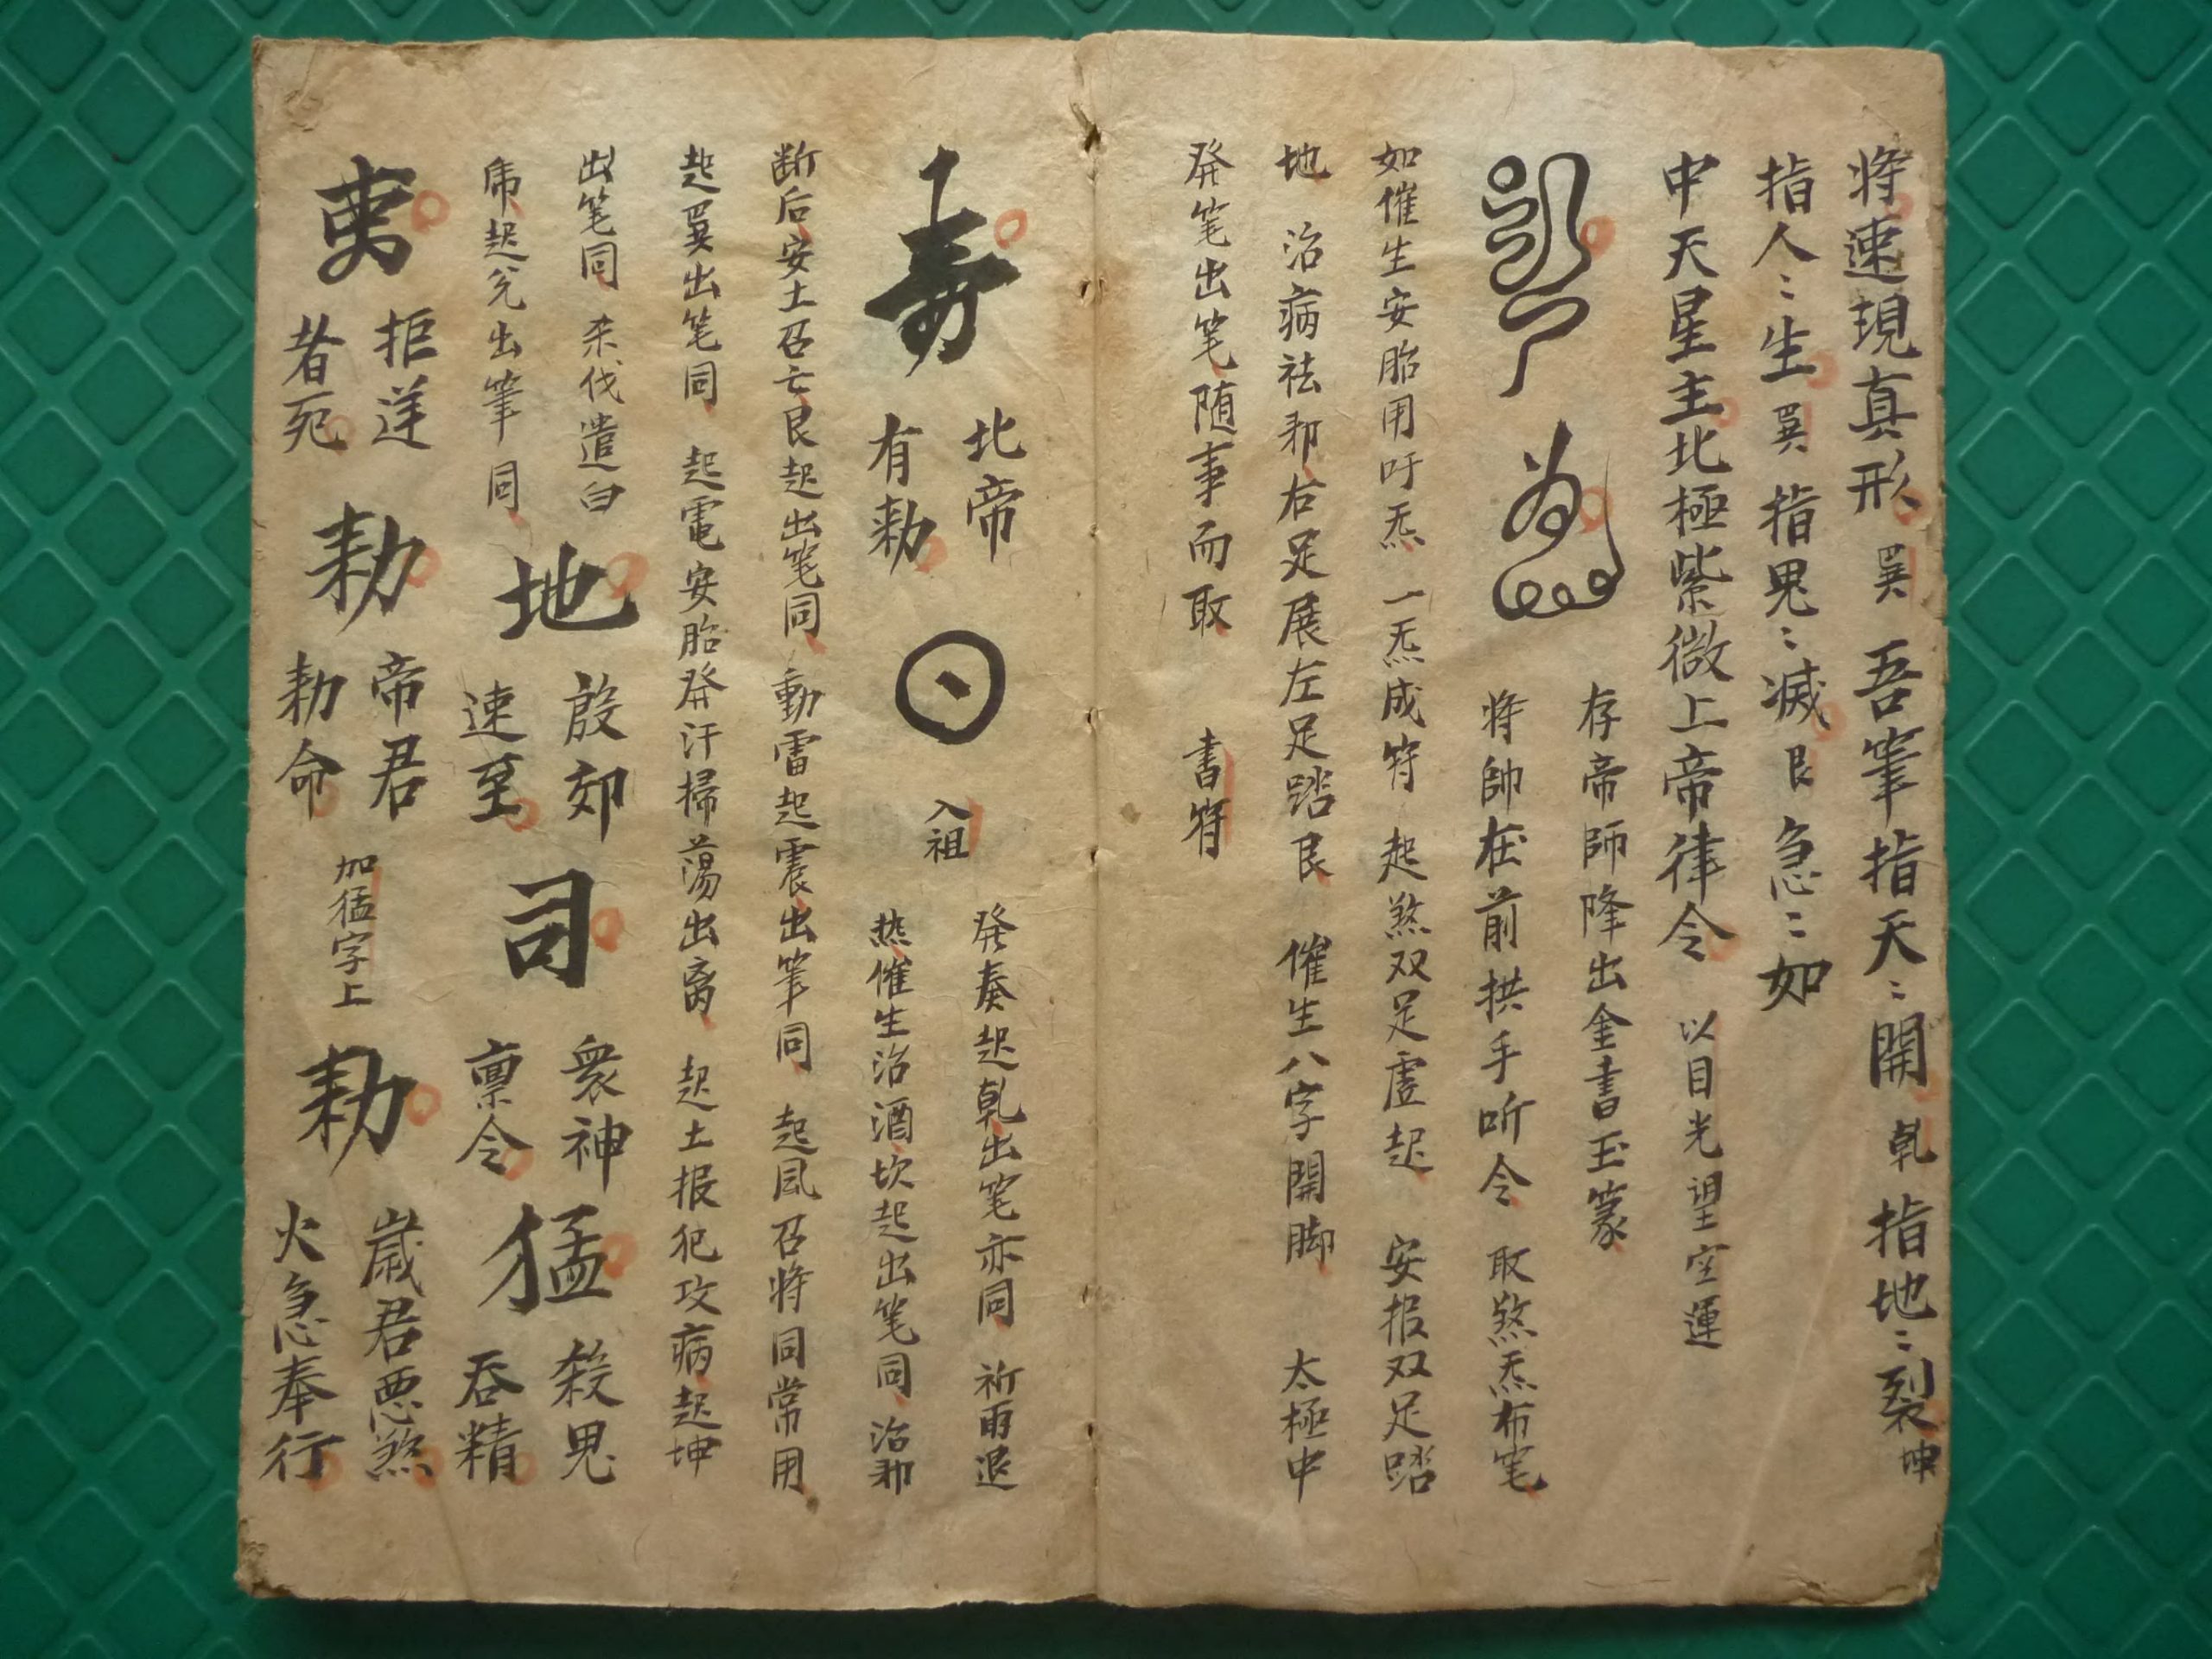 将速現真形 巽 吾筆指天〻開 乾 指地〻裂 坤
指人〻生 巽 指鬼〻滅 艮 急〻如
中天星主北極紫微上帝律令 以目光望空運
存帝師降出金書玉篆
将帥在前拱手听令 取煞炁布笔
如催生安胎用吁炁 一炁成符 起煞双足虚起 安报双足踏
地 治病祛邪右足展左足踏艮 催生八字開脚 太極中
発笔出笔随事而取 書符
寿
北帝
有勅
入祖
発奏起乾出笔亦同 祈雨退
热催生治酒坎起出笔同 治邪
断后安土召亡艮起出笔同 動雷起震出筆同 起風召将同常用
起巽出笔同 起電安胎発汗掃蕩出离 起土报犯攻病起坤
出笔同 杀伐遣白
虎起兊出筆同
地
殷郊
速至
司
衆神
禀令
猛
殺鬼
吞精
拒逆
者死
勅
帝君
勅命
加猛字上
勅
歳君悪煞
火急奉行